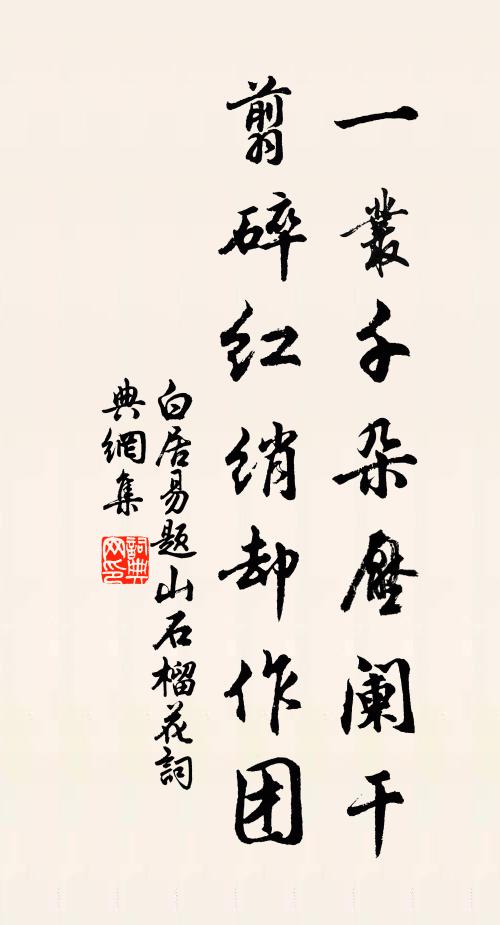 一叢千朵壓阑干
翦碎红绡却作团
白居易题山石榴花詞
典網集
詞典网印